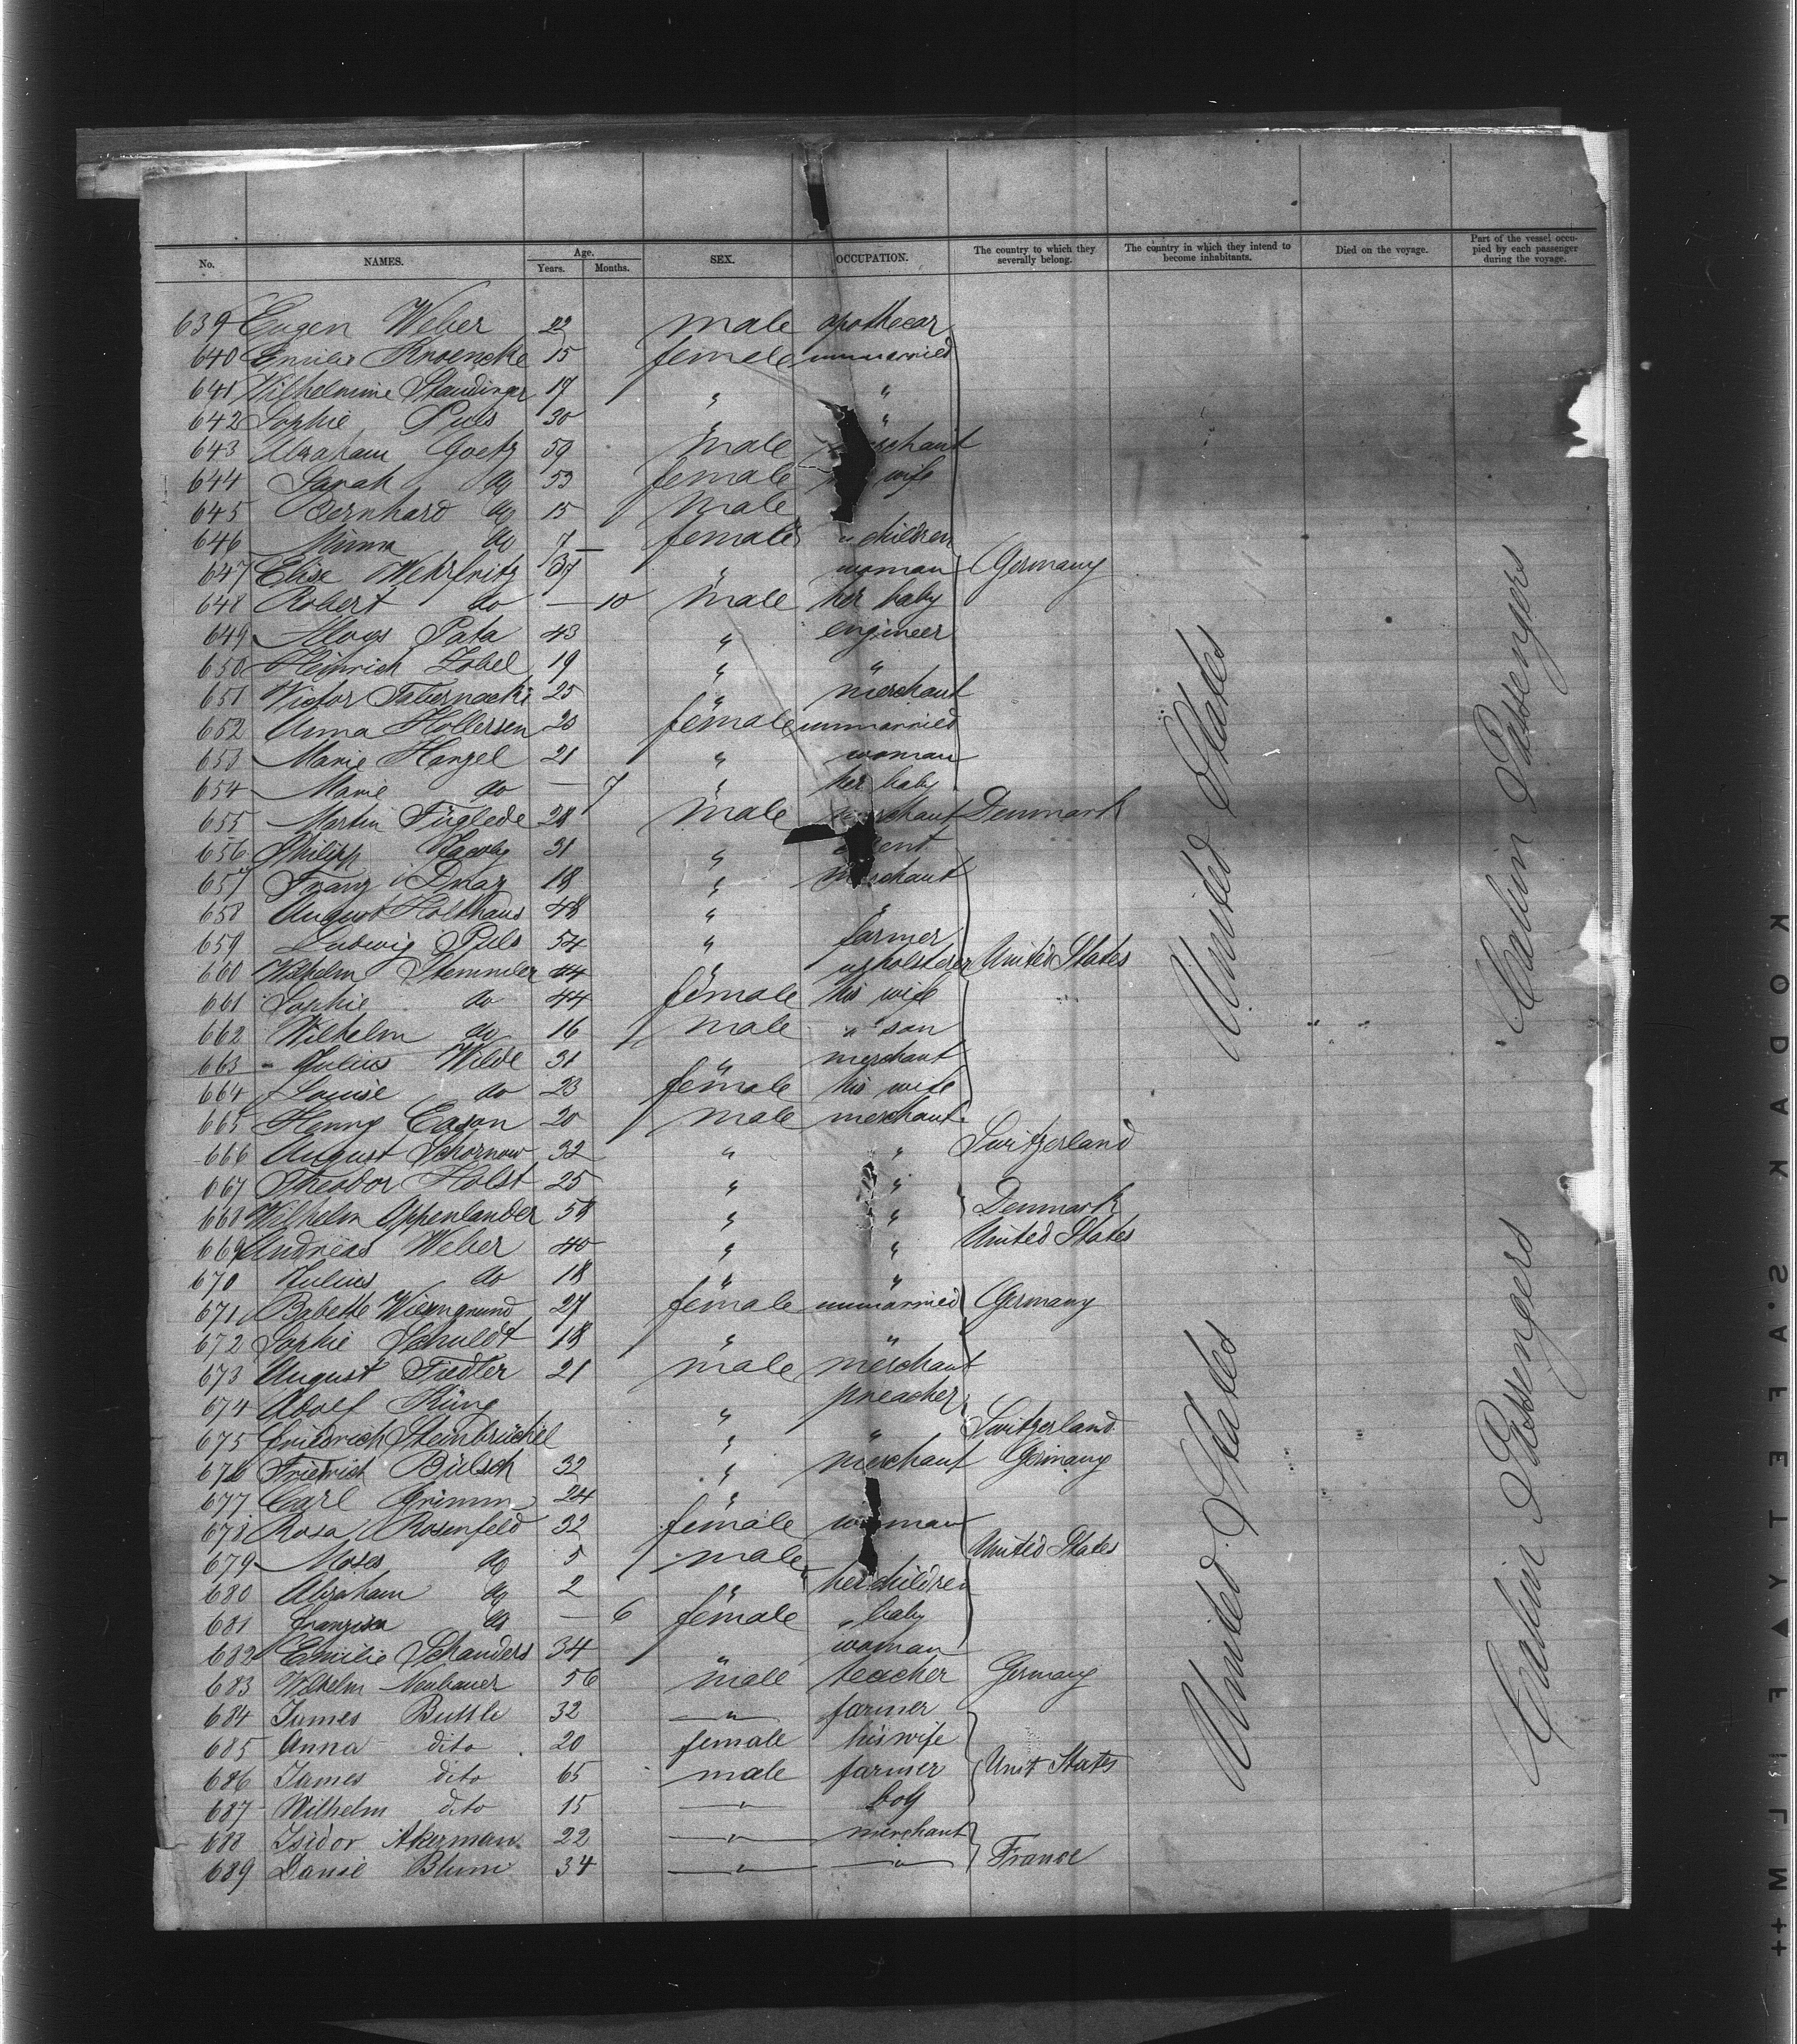 No. NAMES. Age. Years. Months. SEX. OCCUPATION. The country to which they severally belong. The country in which they intend to become inhabitants. Died on the voyage. Part of the vessel occupied by each passenger during the voyage.
639 Eugen Weber 22 male apothecar
640 Emilie Kroencke 15 female unmarried
641 Wilhelmine Staudinger 17 " "
642 Sophie Puls 30 " "
643 Abraham Goetz 59 male merchant
644 Sarah do 53 female wife
645 Bernhard do 15 male
646 Minna do 7 female " children
647 Elise Wehrfritz 37 " woman Germany
648 Robert do — 10 male her baby
649 Aloys Pata 43 " engineer
650 Heinrich Zobel 19 " "
651 Victor Tabernacki 25 " merchant
652 Anna Hollersen 23 female unmarried
653 Marie Hangel 21 " woman
654 Marie do — 7 " her baby
655 Martin Füglede 28 male merchant Denmark
656 Philipp Jacoby 31 "
657 Franz Dnag 18 " merchant
658 August Holthaus 48 " "
659 Ludwig Puls 54 " farmer
660 Wilhelm Stemmler 44 " upholsterer United States
661 Sophie do 44 female his wife
662 Wilhelm do 16 male " son
663 Julius Wilde 31 " merchant
664 Louise do 23 female his wife
665 Henry Eason 20 male merchant
666 August Schornow 32 " " Switzerland
667 Theodor Holst 25 " "
668 Wilhelm Oppenlander 58 " " Denmark
669 Andreas Weber 40 " " United States
670 Julius do 18 " "
671 Babette Wiesengrund 27 female unmarried Germany
672 Sophie Schuldt 18 " "
673 August Fiedler 21 male merchant
674 Adolf Küng " preacher
675 Friedrich Steinbrüchel " " Switzerland
676 Friedrich Bülsch 32 " merchant Germany
677 Carl Grimm 24 "
678 Rosa Rosenfeld 32 female woman
679 Moses do 5 male United States
680 Abraham do 2 " her children
681 Franziska do — 6 female " baby
682 Emilie Schanders 34 " woman
683 Wilhelm Neubauer 56 male teacher Germany
684 James Buttle 32 " farmer
685 Anna dito 20 female his wife
686 James dito 65 male farmer Unit States
687 Wilhelm dito 15 " boy
688 Isidor Akerman 22 " merchant
689 Daniel Blum 34 " " France
United States
United States
Cabin Passengers
Cabin Passengers
KODAK SAFETY FILM